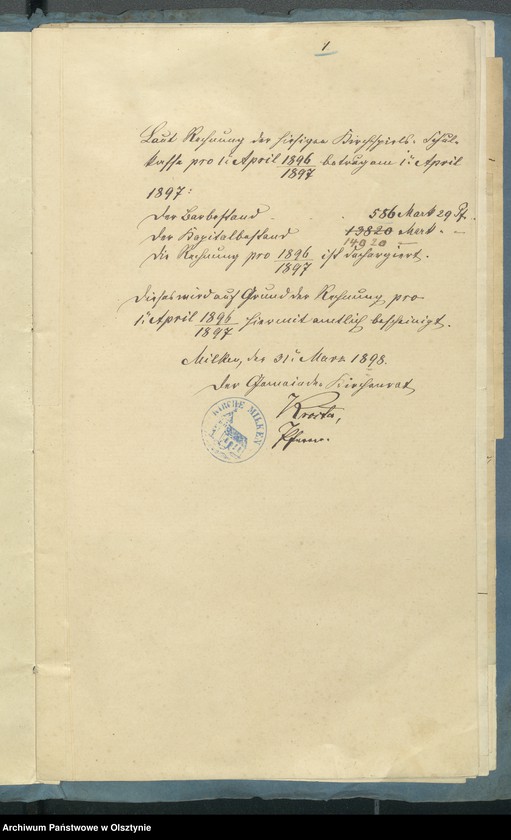 1
Laut Rechnung der hiesigen Kirchspiels-Schul-
kasse pro 1. April 1896/1897 betrug am 1. April
1897:
Der Barbestand 586 Mark 29 Pf.
Der Kapitalbestand 13820 Mark. –
14020
Die Rechnung pro 1896/1897 ist dechargiert.
Dieses wird auf Grund der Rechnung pro
1. April 1896/1897 hiermit amtlich bescheinigt.
Milken, den 31. März 1898.
Der Gemeinde Kirchenrat
Krosta,
Pfarrer.
KIRCHE MILKEN
Archiwum Państwowe w Olsztynie